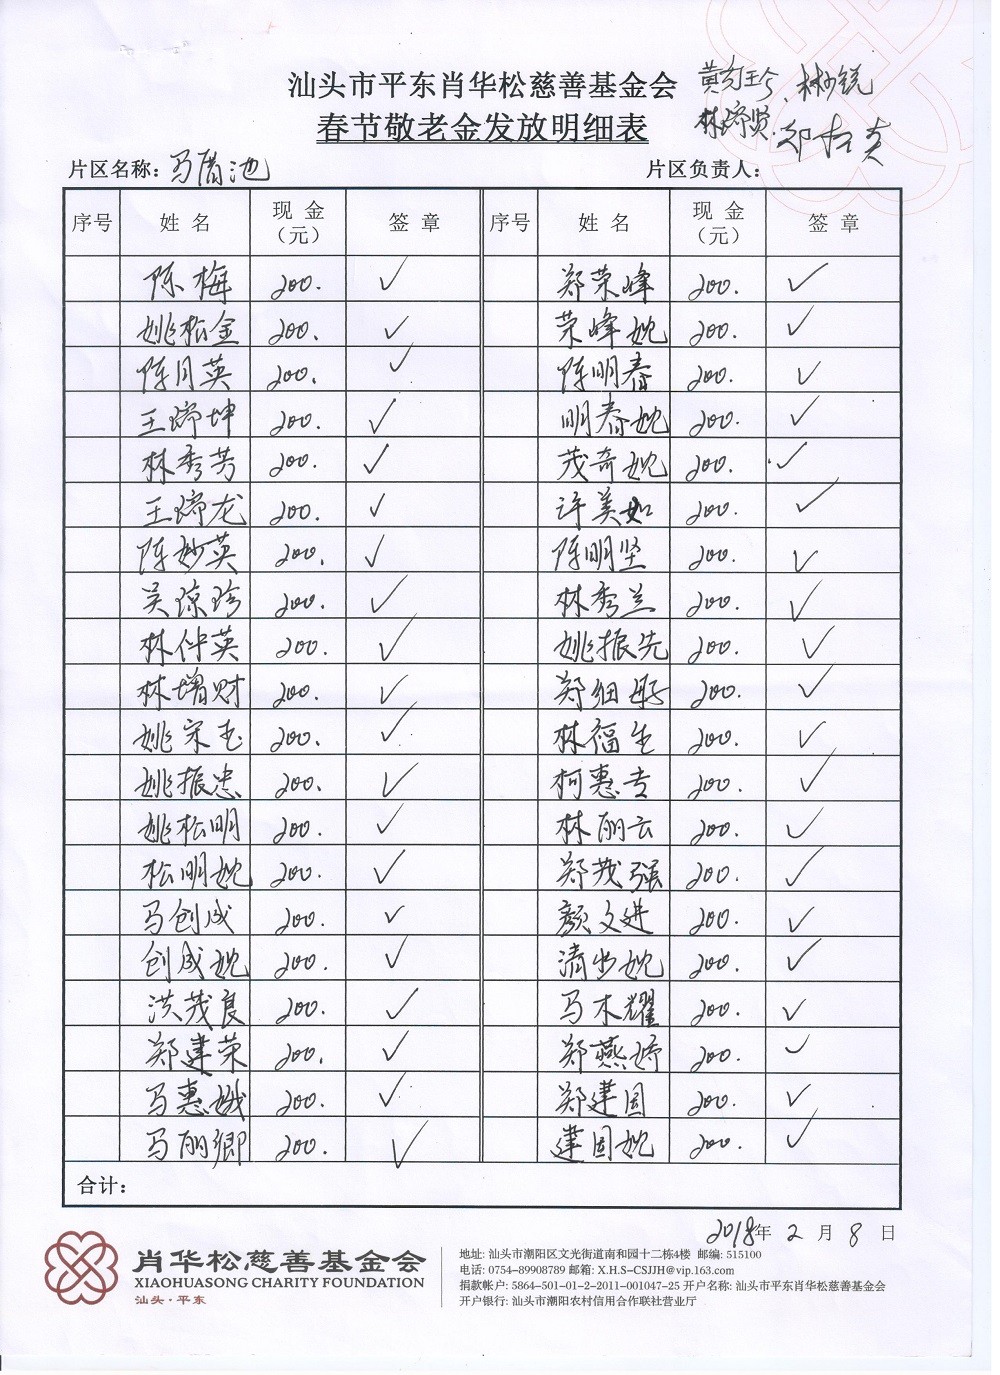 汕头市平东肖华松慈善基金会
春节敬老金发放明细表
林少锐
片区名称：马厝池 片区负责人：
序号 姓名 现金（元） 签章 序号 姓名 现金（元） 签章
陈梅 200. ✓ 郑荣峰 200. ✓
姚松金 200. ✓ 荣峰婏 200. ✓
陈月英 200. ✓ 陈明春 200. ✓
王璋坤 200. ✓ 明春婏 200. ✓
林秀芳 200. ✓ 茂奇婏 200. ✓
王 龙 200. ✓ 许美如 200. ✓
陈妙英 200. ✓ 陈明坚 200. ✓
吴琼珍 200. ✓ 林秀兰 200. ✓
林仲英 200. ✓ 姚振先 200. ✓
林增财 200. ✓ 郑细 200. ✓
姚宋 200. ✓ 林福生 200. ✓
姚振忠 200. ✓ 柯惠 200. ✓
姚松明 200. ✓ 林丽云 200. ✓
松明婏 200. ✓ 郑茂强 200. ✓
马创成 200. ✓ 颜文进 200. ✓
创成婏 200. ✓ 清 婏 200. ✓
洪茂良 200. ✓ 马木耀 200. ✓
郑建荣 200. ✓ 郑燕婷 200. ✓
马惠娥 200. ✓ 郑建国 200. ✓
马丽卿 200. ✓ 建国婏 200. ✓
合计：
2018年 2 月 8 日
肖华松慈善基金会
XIAOHUASONG CHARITY FOUNDATION
汕头·平东
地址: 汕头市潮阳区文光街道南和园十二栋4楼 邮编: 515100
电话: 0754-89908789 邮箱: X.H.S-CSJJH@vip.163.com
捐款帐户: 5864-501-01-2-2011-001047-25 开户名称: 汕头市平东肖华松慈善基金会
开户银行: 汕头市潮阳农村信用合作联社营业厅